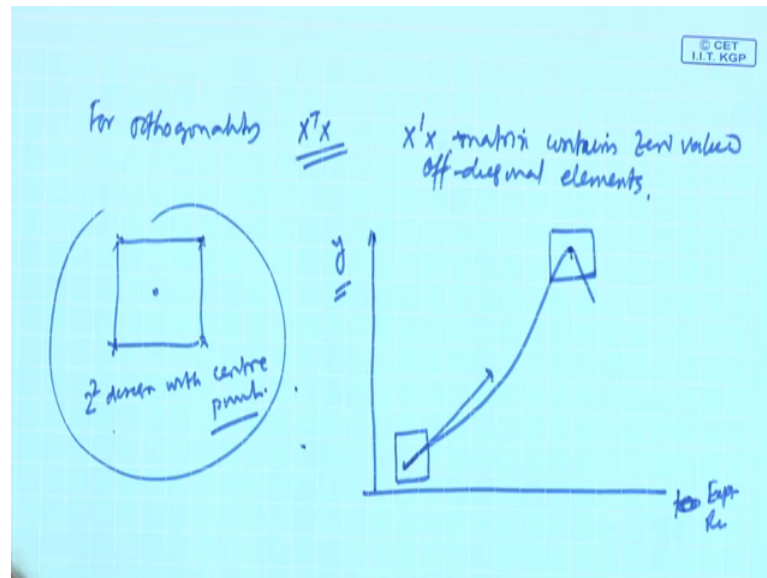 © CET
I.I.T. KGP
For orthogonality XᵀX X'X matrix contains Zero valued
off-diagonal elements.
y
2² design with centre
points.
Expt